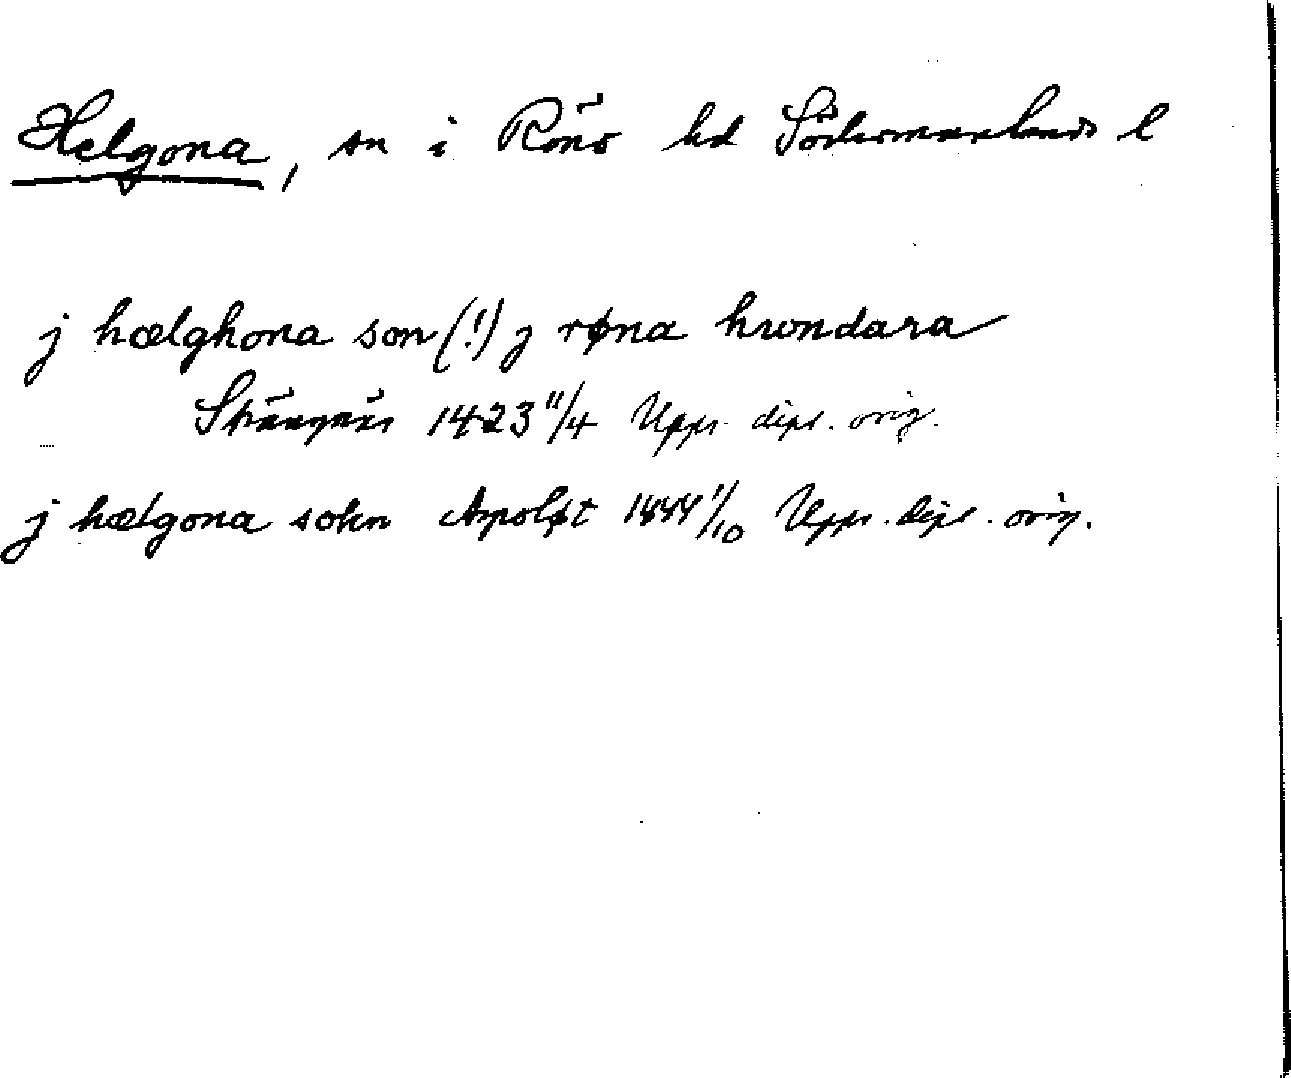 Helgona, sn i Rönö hd Södermanlands l
j hælghona son (!) j røna hwndara
Strängnäs 1423 11/4 Upps. dipl. orig.
j hælgona sokn Aspoløt 1444 1/10 Upps. dipl. orig.